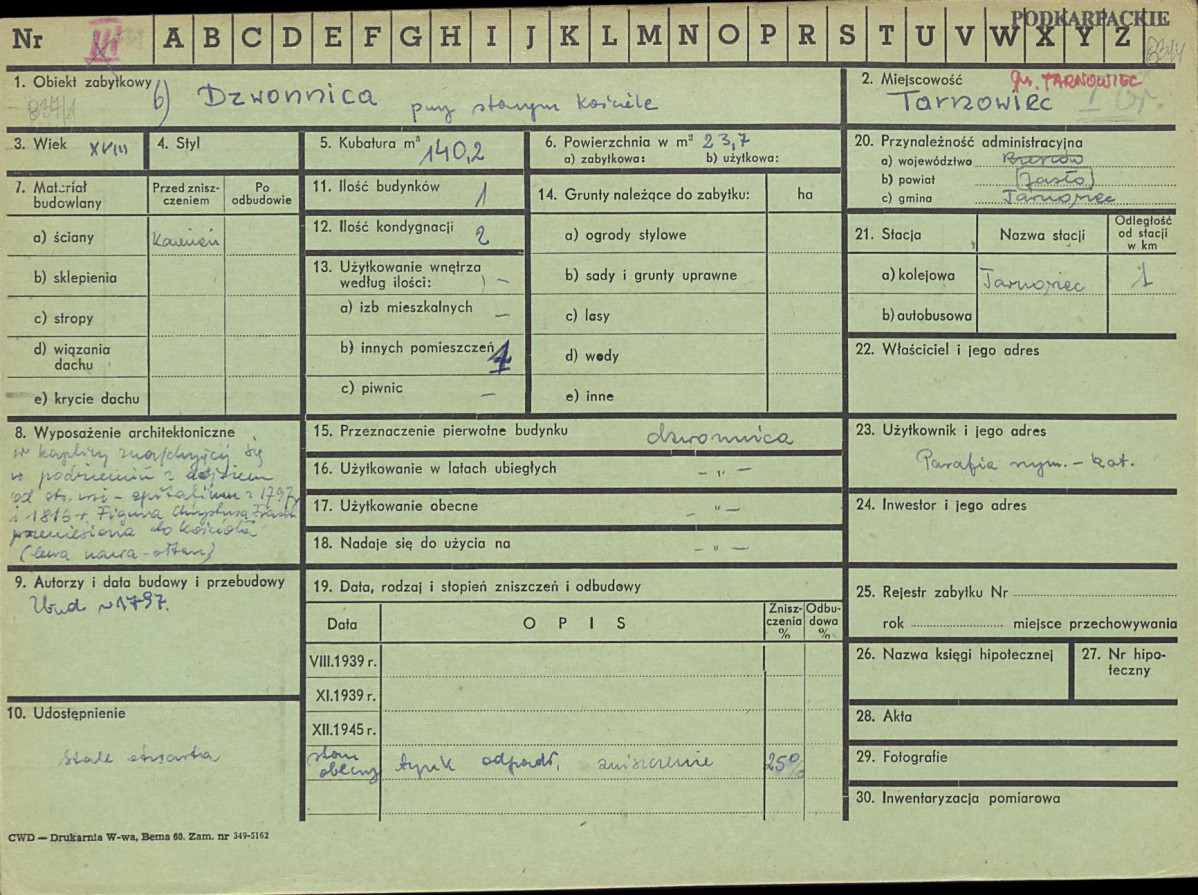 PODKARPACKIE
Nr III A B C D E F G H I J K L M N O P R S T U V W X Y Z
1. Obiekt zabytkowy b) Dzwonnica przy starym kościele
2. Miejscowość gm. TARNOWIEC
Tarnowiec
3. Wiek XVIII
4. Styl
5. Kubatura m³ 140,2
6. Powierzchnia w m² 23,7
a) zabytkowa: b) użytkowa:
7. Materiał budowlany
Przed zniszczeniem
Po odbudowie
a) ściany Kamień
b) sklepienia
c) stropy
d) wiązania dachu
e) krycie dachu
8. Wyposażenie architektoniczne
w kaplicy znajdującej się
w podziemiu z dojściem
od str. wsi - epitafium z 1797
i 1816 r. Figura Chrystusa
przeniesiona do kościoła
(lewa nawa - ołtarz)
9. Autorzy i data budowy i przebudowy
Zbud. w 1797.
10. Udostępnienie
Stale otwarta
11. Ilość budynków 1
12. Ilość kondygnacji 2
13. Użytkowanie wnętrza według ilości: –
a) izb mieszkalnych –
b) innych pomieszczeń 1
c) piwnic –
14. Grunty należące do zabytku: ha
a) ogrody stylowe
b) sady i grunty uprawne
c) lasy
d) wody
e) inne
15. Przeznaczenie pierwotne budynku dzwonnica
16. Użytkowanie w latach ubiegłych – " –
17. Użytkowanie obecne – " –
18. Nadaje się do użycia na – " –
19. Data, rodzaj i stopień zniszczeń i odbudowy
Data OPIS Zniszczenia % Odbudowa %
VIII.1939 r.
XI.1939 r.
XII.1945 r.
stan obecny tynk odpadł, zniszczenie 25%
20. Przynależność administracyjna
a) województwo Rzeszów
b) powiat Jasło
c) gmina Tarnowiec
21. Stacja Nazwa stacji Odległość od stacji w km
a) kolejowa Tarnowiec 1
b) autobusowa
22. Właściciel i jego adres
23. Użytkownik i jego adres
Parafia rzym. - kat.
24. Inwestor i jego adres
25. Rejestr zabytku Nr
rok miejsce przechowywania
26. Nazwa księgi hipotecznej
27. Nr hipoteczny
28. Akta
29. Fotografie
30. Inwentaryzacja pomiarowa
CWD — Drukarnia W-wa, Bema 60. Zam. nr 349-5162